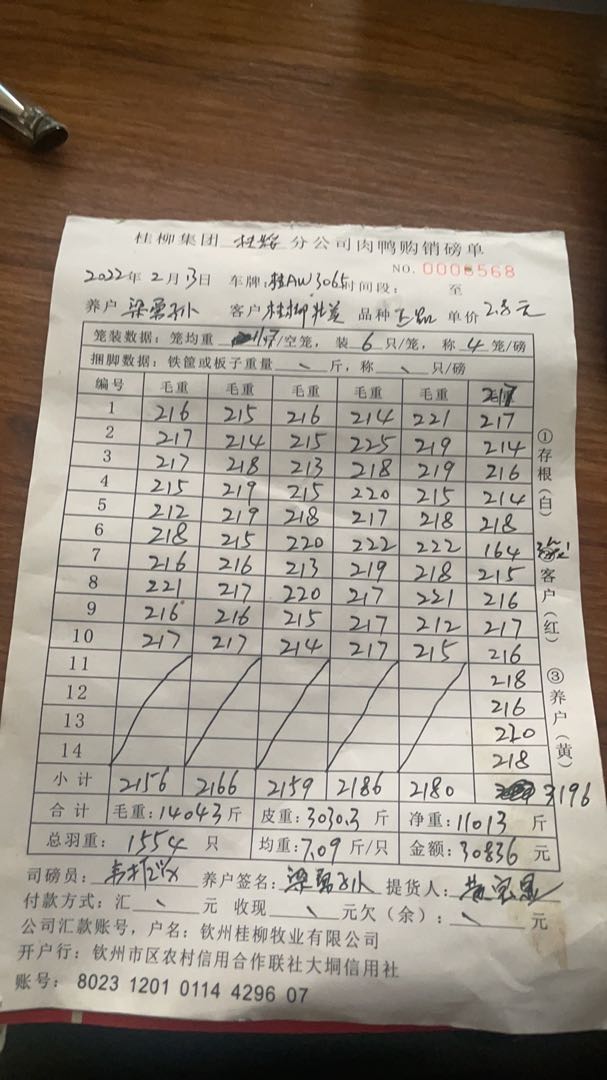 桂柳集团 分公司肉鸭购销磅单
NO. 0006568
2022年2月13日 车牌:桂AW3065 时间段: 至
养户 梁 孙 客户 桂柳 品种 单价 2.8元
笼装数据:笼均重 /空笼,装 6 只/笼,称 4 笼/磅
捆脚数据:铁筐或板子重量 \ 斤,称 \ 只/磅
编号 毛重 毛重 毛重 毛重 毛重
1 216 215 216 214 221 217
2 217 214 215 225 219 214
3 217 218 213 218 219 216
4 215 219 215 220 215 214
5 212 219 218 217 218 218
6 218 215 220 222 222 164
7 216 216 213 219 218 215
8 221 217 220 217 221 216
9 216 216 215 217 212 217
10 217 217 214 217 215 216
11 218
12 216
13 220
14 218
小计 2156 2166 2159 2186 2180 3196
合计 毛重:14043斤 皮重:3030.3斤 净重:11013斤
总羽重: 1554 只 均重:7.09斤/只 金额:30836元
司磅员: 养户签名:梁 孙 提货人:黄
付款方式:汇 \ 元 收现 \ 元欠(余): \ 元
公司汇款账号,户名:钦州桂柳牧业有限公司
开户行:钦州市区农村信用合作联社大垌信用社
账号:8023 1201 0114 4296 07
①存根(白)
客户(红)
③养户(黄)